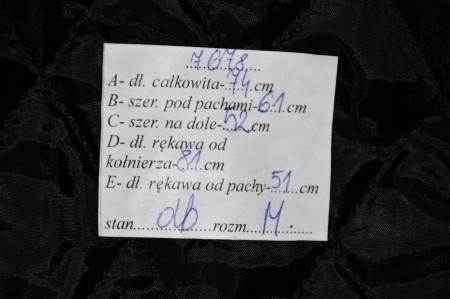 7678
A- dł. całkowita-74.cm
B- szer. pod pachami-61.cm
C- szer. na dole-52cm
D- dł. rękawa od
kołnierza-81cm
E- dł. rękawa od pachy-51 cm
stan......db.......rozm...M....